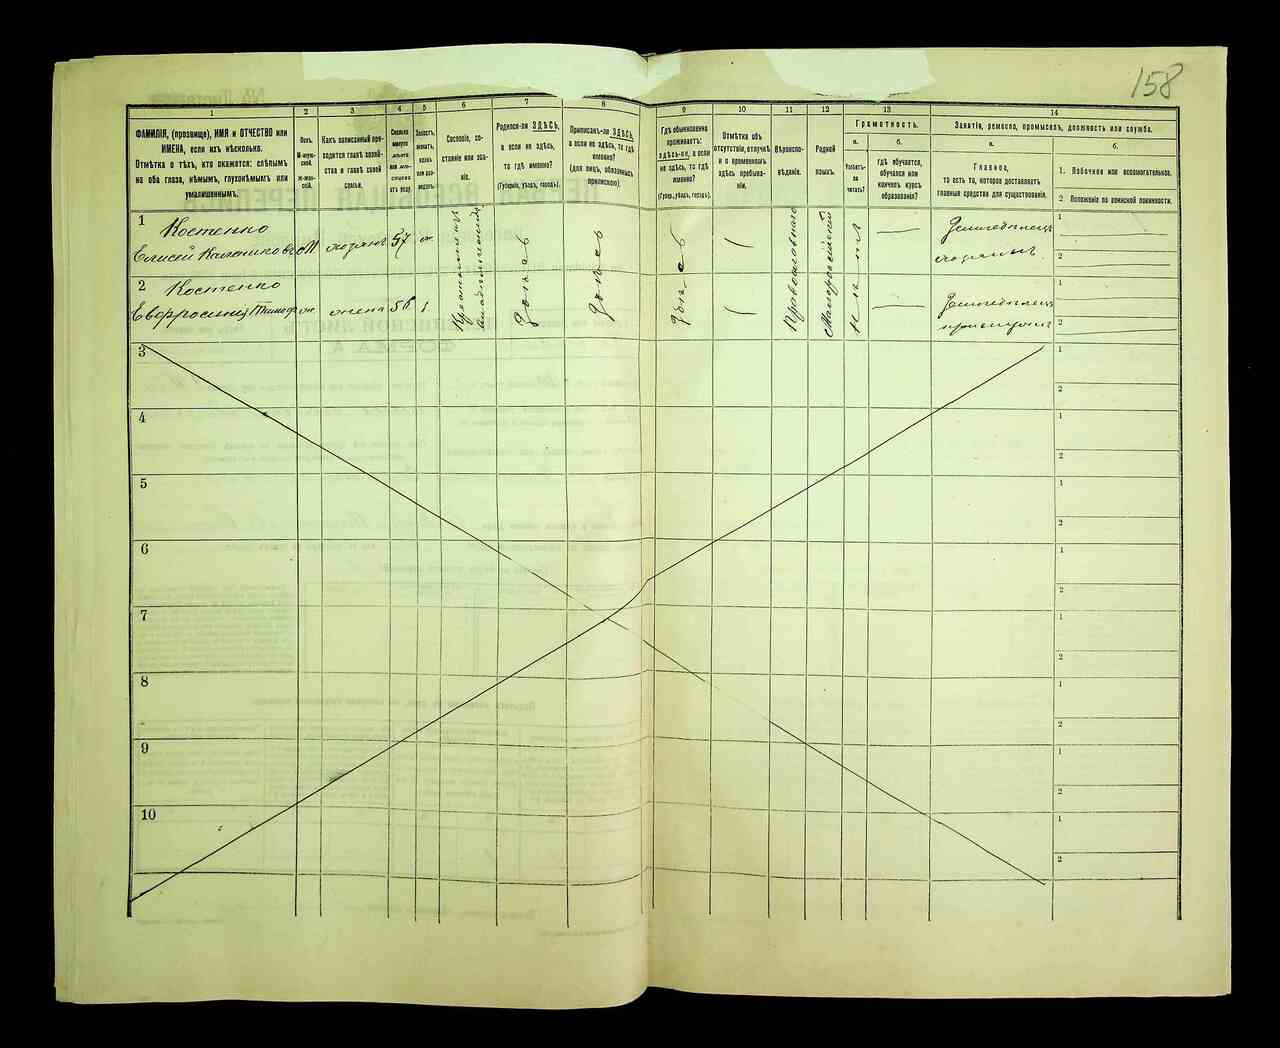 158
1
2
3
4
5
6
7
8
9
10
11
12
13
14
ФАМИЛІЯ, (прозвище), ИМЯ и ОТЧЕСТВО или
ИМЕНА, если ихъ нѣсколько.
Отмѣтка о тѣхъ, кто окажется: слѣпымъ
на оба глаза, нѣмымъ, глухонѣмымъ или
умалишеннымъ.
Полъ.
М-муж-
ской.
Ж-жен-
скій.
Какъ записанный при-
ходится главѣ хозяй-
ства и главѣ своей
семьи.
Сколько
минуло
лѣтъ
или мѣ-
сяцевъ
отъ роду.
Холостъ,
женатъ,
вдовъ
или раз-
веденъ.
Сословіе, со-
стояніе или зва-
ніе.
Родился-ли ЗДѢСЬ,
а если не здѣсь,
то гдѣ именно?
(Губернія, уѣздъ, городъ).
Приписанъ-ли ЗДѢСЬ,
а если не здѣсь, то гдѣ
именно?
(для лицъ, обязанныхъ
припискою).
Гдѣ обыкновенно
проживаетъ:
здѣсь-ли, а если
не здѣсь, то гдѣ
именно?
(Губер., уѣздъ, городъ).
Отмѣтка объ
отсутствіи, отлучкѣ
и о временномъ
здѣсь пребыва-
ніи.
Вѣроиспо-
вѣданіе.
Родной
языкъ.
Грамотность.
а.
Умѣетъ-
ли
читать?
б.
гдѣ обучается,
обучался или
кончилъ курсъ
образованія?
Занятіе, ремесло, промыселъ, должность или служба.
а.
Главное,
то есть то, которое доставляетъ
главныя средства для существованія.
б.
1. Побочное или вспомогательное.
2 Положеніе по воинской повинности.
1
Костенко
Елисей
М
хозяинъ
57
ж
Крестьянинъ
здѣсь
здѣсь
здѣсь
Православнаго
Малороссійскій
нѣтъ
Земледѣлецъ
хозяинъ
1
2
2
Костенко
Евфросинія
ж
жена
56
Земледѣлецъ
1
2
3
1
2
4
1
2
5
1
2
6
1
2
7
1
2
8
1
2
9
1
2
10
1
2